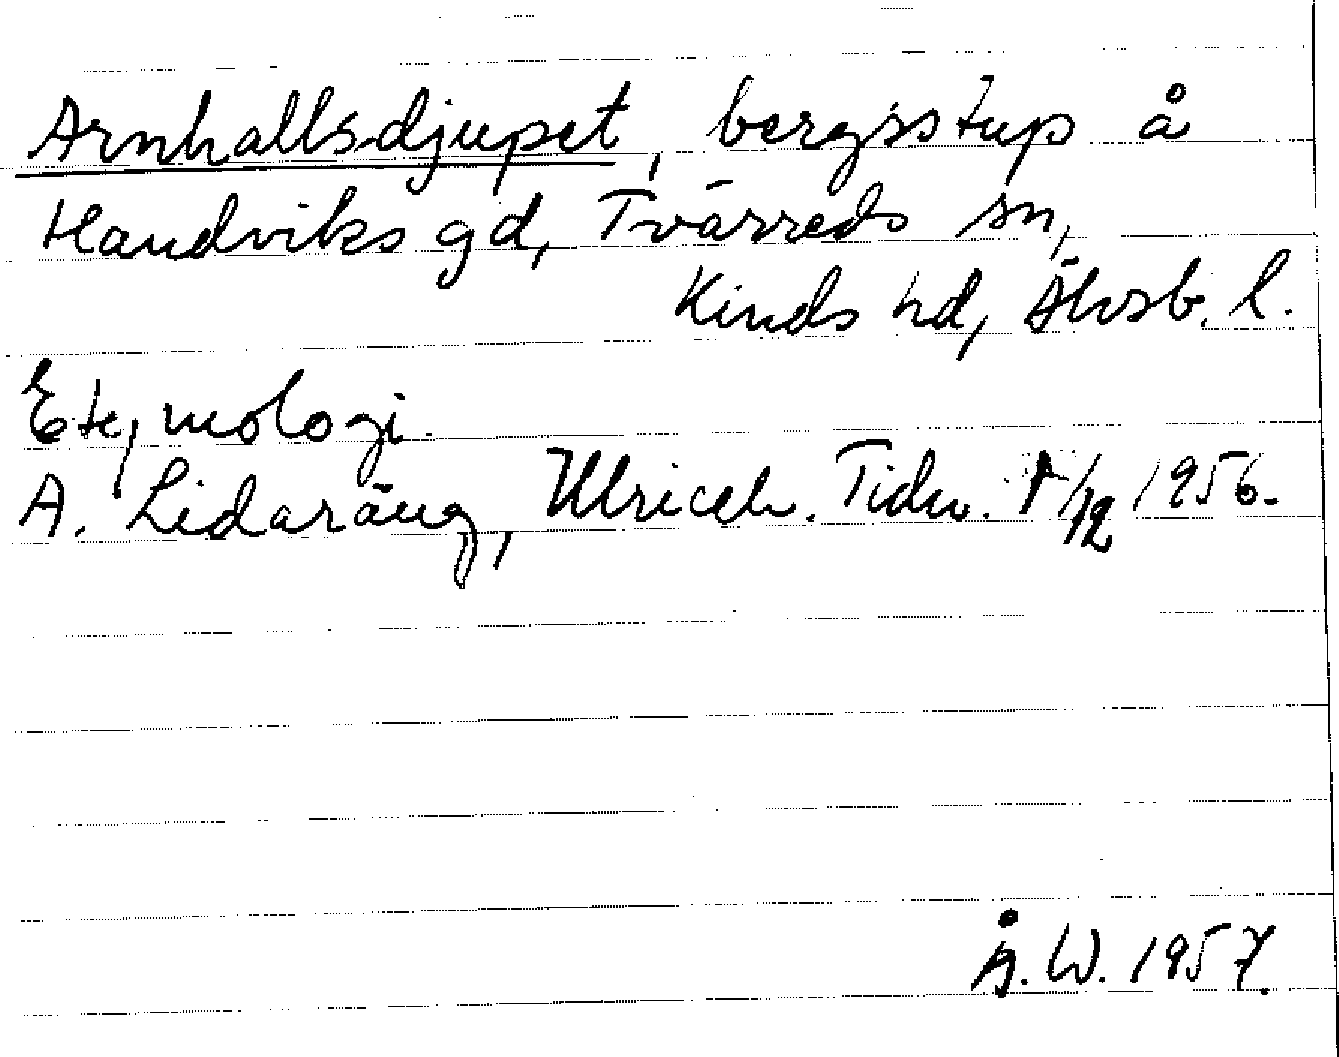 Arnhallsdjupet, bergsstup å
Handviks gd, Tvärreds sn,
Kinds hd, Älvsb. l.
Etymologi.
A. Lidaräng, Ulriceh. Tidn. 1/12 1956.
Å. W. 1957.